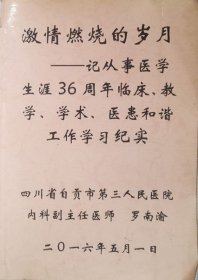 激情燃烧的岁月
——记从事医学
生涯36周年临床、教
学、学术、医患和谐
工作学习纪实
四川省自贡市第三人民医院
内科副主任医师 罗南渝
二〇一六年五月一日